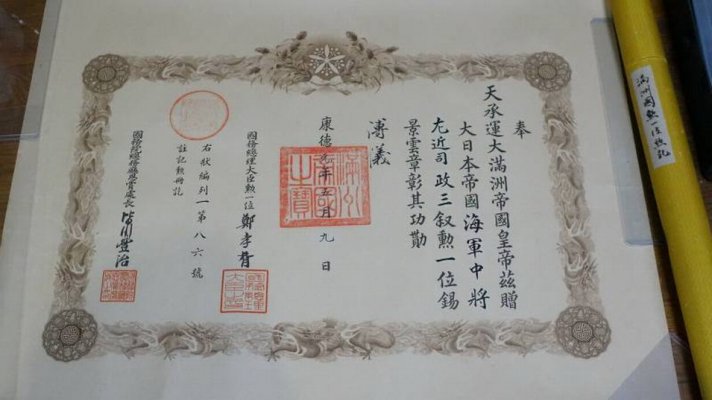 奉
天承運大滿洲帝國皇帝茲贈
大日本帝國海軍中將
左近司政三叙勳一位錫
景雲章彰其功勛
溥儀
康德元年五月九日
滿洲國之寶
國務總理大臣勲一位鄭孝胥
右狀編列一第八六號
註記勲冊訖
國務院總務廳恩賞處長
滿洲國勲一位勲記